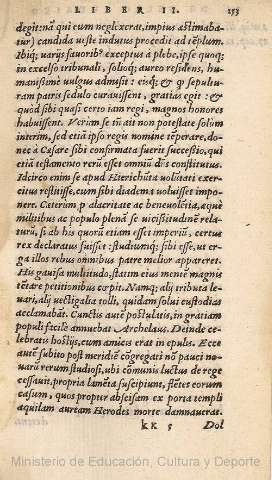 LIBER II. 153
degit: nã qui cum neglexerat, impius æstimaba-
tur) candida veste indutus procedit ad tẽplum.
Ibiq; varijs fauoribᵒ exceptus à plebe, ipse quoq;
in excelso tribunali, solioq; aureo residens, hu-
manissimè vulgus admisit: eisq; & ꝙ sepultu-
ram patris sedulo curauissent, gratias egit: &
quòd sibi quasi certo iam regi, magnos honores
habuissent. Verùm se in aït non potestate solum
interim, sed etiã ipso regis nomine tẽperare, do-
nec à Cæsare sibi confirmata fuerit successio, qui
etiã testamento rerũ esset omniũ dñs constitutus.
Idcirco enim se apud Hierichũta volũtati exer-
citus restitisse, cum sibi diadema voluisset impo-
nere. Ceterùm ꝓ alacritate ac beneuolẽtia, æquè
militibus ac populo plenã se vicissitudinẽ rela-
turũ, si ab his quorũ etiam esset imperiũ, certus
rex declaratus fuisset: studiumq; sibi esse, vt er-
ga illos rebus omnibus patre melior appareret.
His gauisa multitudo, statim eius mentẽ magnis
tẽtare petitionibus cœpit. Namq; alij tributa le-
uari, alij vectigalia tolli, quidam solui custodias
acclamabãt. Cunctis autẽ postulatis, in gratiam
populi facilè annuebat Archelaus. Deinde ce-
lebratis hostijs, cum amicis erat in epulis. Ecce
autẽ subito post meridiẽ cõgregati nõ pauci no-
uarũ rerum studiosi, vbi cõmunis luctus de rege
cessauit, propria lamẽta suscipiunt, flẽtes eorum
casum, quos propter abscisam ex porta templi
aquilam auream Herodes morte damnauerat.
kk 5 Dol
Ministerio de Educación, Cultura y Deporte